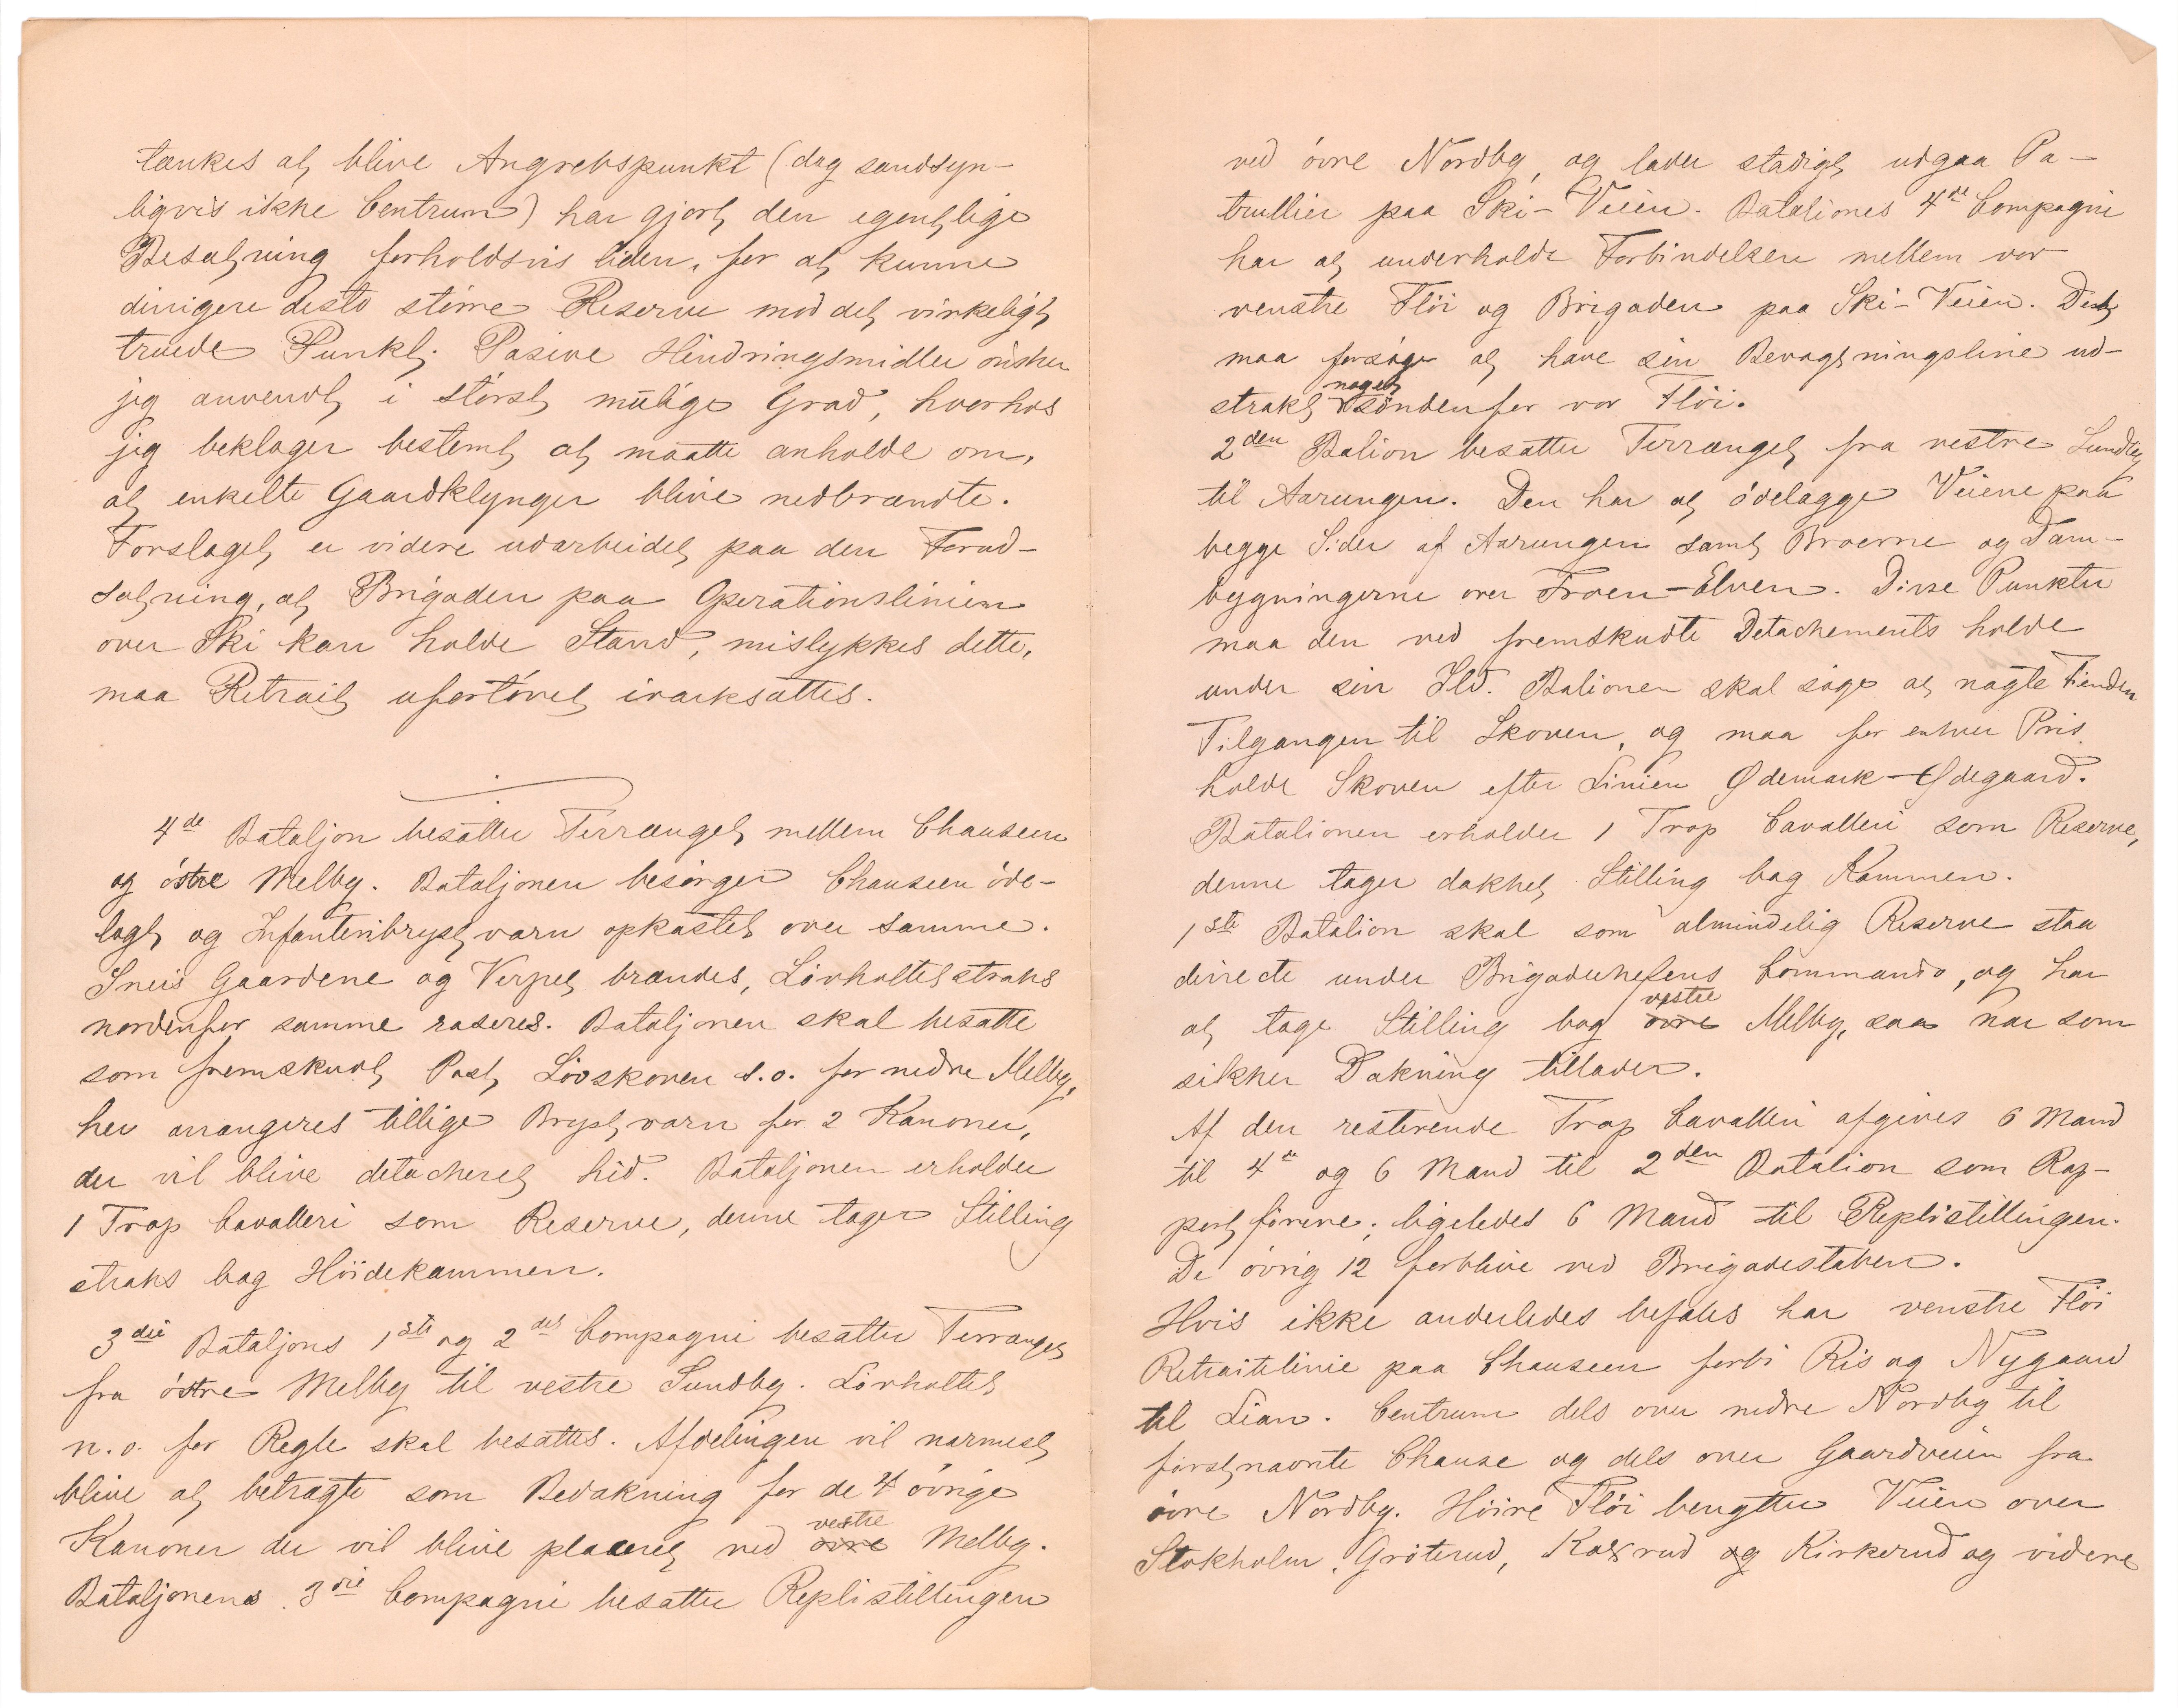 tænkes at blive Angrebspunkt (dog sandsyn-
ligvis ikke Centrum) har gjort den egentlige
Besætning forholdsvis liden, for at kunne
dirigere desto større Reserve mod det virkeligt
truede Punkt. Pasive Hindringsmidler ønsker
jeg anvendt i størst mulige Grad, hvorhos
jeg beklager bestemt at maatte anholde om,
at enkelte Gaardklynger blive nedbrændte.
Forslaget er videre udarbeidet paa den Forud-
sætning, at Brigaden paa Operationslinien
over Ski kan holde Stand, mislykkes dette,
maa Retrait ufortøvet iværksættes.
4de Bataljon besætter Terrænget mellem Chauseen
og østre Melby. Bataljonen besørger Chauseen øde-
lagt og Infanteribrystværn opkastet over samme.
Sneis Gaardene og Verpet brændes, Løvholtet straks
nordenfor samme raseres. Bataljonen skal besætte
som fremskudt Post Løvskoven s.o. for nedre Melby,
her arrangeres tillige Brystværn for 2 Kanoner,
der vil blive detacheret hid. Bataljonen erholder
1 Trop Cavalleri som Reserve, denne tager Stilling
straks bag Høidekammen.
3die Bataljons 1ste og 2det Compagni besætter Terrænget
fra østre Melby til vestre Sundby. Løvholtet
n.o. for Regle skal besættes. Afdelingen vil nærmest
blive at betragte som Bedækning for de 4 øvrige
Kanoner der vil blive placeret ved øvre vestre Melby.
Bataljonens 3die Compagni besætter Replistillingen
ved øvre Nordby, og lader stadigt udgaa Pa-
trullier paa Ski-Veien. Batalionens 4de Compagni
har at underholde Forbindelsen mellem vor
venstre Fløi og Brigaden paa Ski-Veien. Det
maa forsøge at have sin Bevogtningslinie ud-
strakt noget søndenfor vor Fløi.
2den Balion besætter Terrænget fra vestre Sundby
til Aarungen. Den har at ødelægge Veiene paa
begge Sider af Aarungen samt Broerne og Dam-
bygningerne over Froen-Elven. Disse Punkter
maa den ved fremskudte Detachements holde
under sin Ild. Balionen skal søge at nægte Fienden
Tilgangen til Skoven, og maa for enhver Pris
holde Skoven efter Linien Ødemark-Ødegaard.
Batalionen erholder 1 Trop Cavalleri som Reserve,
denne tager dækket Stilling bag Kammen.
1ste Batalion skal som almindelig Reserve staa
directe under Brigadechefens Commando, og har
at tage Stilling bag øvre vestre Melby, saa nær som
sikker Dækning tillader.
Af den resterende Trop Cavalleri afgives 6 Mand
til 4de og 6 Mand til 2den Batalion som Rap-
portførere; ligeledes 6 Mand til Replistillingen.
De øvrig 12 forblive ved Brigadestaben.
Hvis ikke anderledes befales har venstre Fløi
Retraitelinie paa Chauseen forbi Ris og Nygaard
til Lian. Centrum dels over nedre Nordby til
førstnævnte Chause og dels over Gaardveien fra
øvre Nordby. Høire Fløi benytter Veien over
Stokholm, Grøterud, og Kirkerud og videre